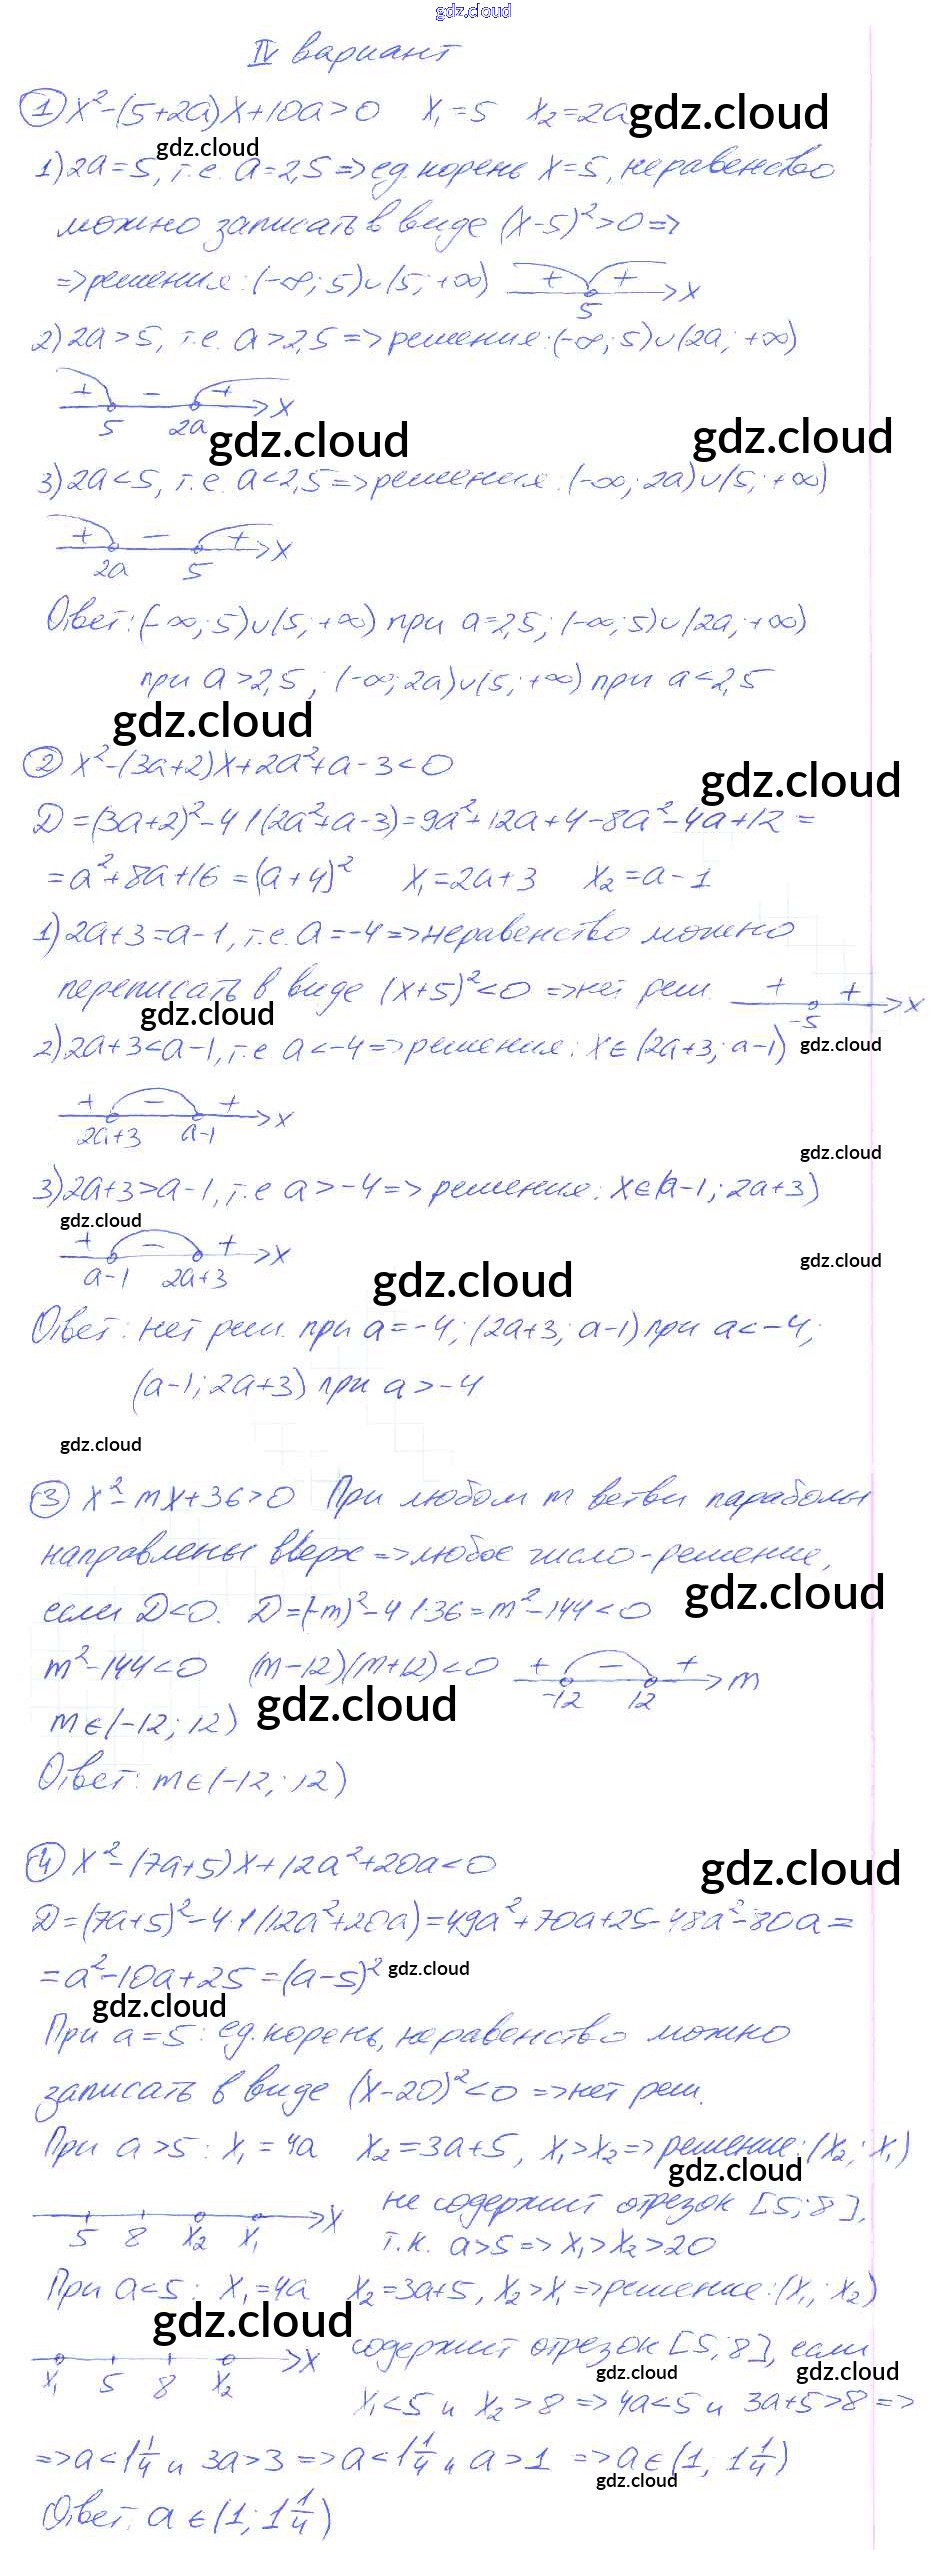 gdz.cloud
IV вариант
① x²-(5+2a)x+10a>0 x₁=5 x₂=2a gdz.cloud
gdz.cloud
1) 2a=5, т.е. a=2,5 => ед. корень x=5, неравенство
можно записать в виде (x-5)²>0 =>
=> решения: (-∞; 5)∪(5; +∞) + + x
5
2) 2a>5, т.е. a>2,5 => решение: (-∞; 5)∪(2a; +∞)
+ - + x
5 2a gdz.cloud gdz.cloud
3) 2a<5, т.е. a<2,5 => решения: (-∞; 2a)∪(5; +∞)
+ - + x
2a 5
Ответ: (-∞; 5)∪(5; +∞) при a=2,5; (-∞; 5)∪(2a; +∞)
при a>2,5; (-∞; 2a)∪(5; +∞) при a<2,5
gdz.cloud
② x²-(3a+2)x+2a²+a-3<0 gdz.cloud
D=(3a+2)²-4·1(2a²+a-3)=9a²+12a+4-8a²-4a+12=
=a²+8a+16=(a+4)² x₁=2a+3 x₂=a-1
1) 2a+3=a-1, т.е. a=-4 => неравенство можно
переписать в виде (x+5)²<0 => нет реш. + + x
gdz.cloud -5
2) 2a+3<a-1, т.е a<-4 => решения: x∈(2a+3; a-1) gdz.cloud
+ - + x
2a+3 a-1
gdz.cloud
3) 2a+3>a-1, т.е a>-4 => решения: x∈(a-1; 2a+3)
gdz.cloud
+ - + x gdz.cloud
a-1 2a+3 gdz.cloud
Ответ: нет реш. при a=-4; (2a+3; a-1) при a<-4;
(a-1; 2a+3) при a>-4
gdz.cloud
③ x²-mx+36>0 При любом m ветви параболы
направлены вверх => любое число-решение,
если D<0. D=(-m)²-4·1·36=m²-144<0 gdz.cloud
m²-144<0 (m-12)(m+12)<0 + - + m
gdz.cloud -12 12
m∈(-12; 12)
Ответ: m∈(-12; 12)
④ x²-(7a+5)x+12a²+20a<0 gdz.cloud
D=(7a+5)²-4·1(12a²+20a)=49a²+70a+25-48a²-80a=
=a²-10a+25=(a-5)² gdz.cloud
gdz.cloud
При a=5: ед. корень, неравенство можно
записать в виде (x-20)²<0 => нет реш.
При a>5: x₁=4a x₂=3a+5, x₁>x₂ => решение: (x₂; x₁)
gdz.cloud
не содержит отрезок [5; 8],
x
5 8 x₂ x₁ т.к. a>5 => x₁>x₂>20
При a<5: x₁=4a x₂=3a+5, x₂>x₁ => решение: (x₁; x₂)
gdz.cloud
x содержит отрезок [5; 8], если
x₁ 5 8 x₂ gdz.cloud gdz.cloud
x₁<5 и x₂>8 => 4a<5 и 3a+5>8 =>
=> a<1 1/4 и 3a>3 => a<1 1/4 и a>1 => a∈(1; 1 1/4)
gdz.cloud
Ответ: a∈(1; 1 1/4)